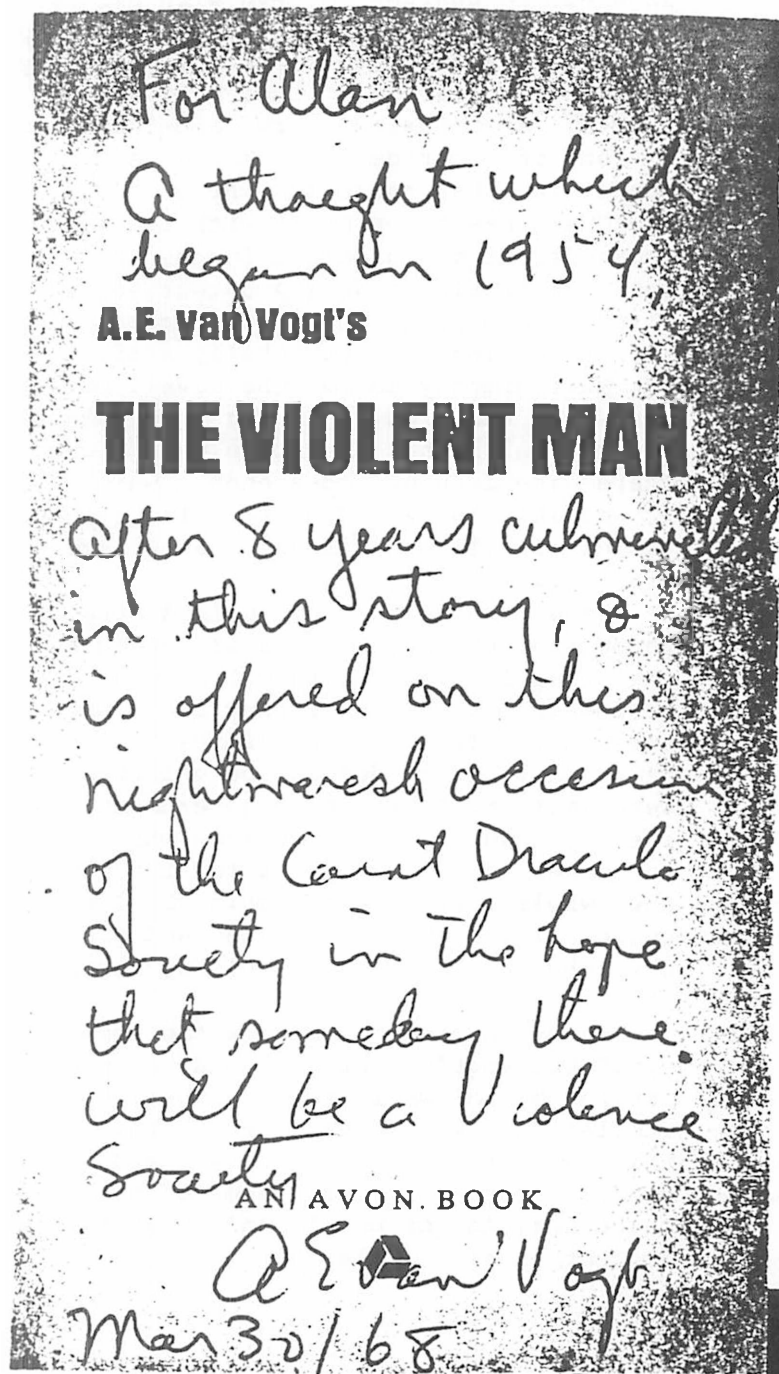 For Alan
A thought which
began in 1954,
A.E. van Vogt's
THE VIOLENT MAN
after 8 years culminated
in this story, &
is offered on this
nightmarish occasion
of the Count Dracula
Society in the hope
that someday there
will be a Violence
Society
AN AVON BOOK
A E van Vogt
Mar 30/68